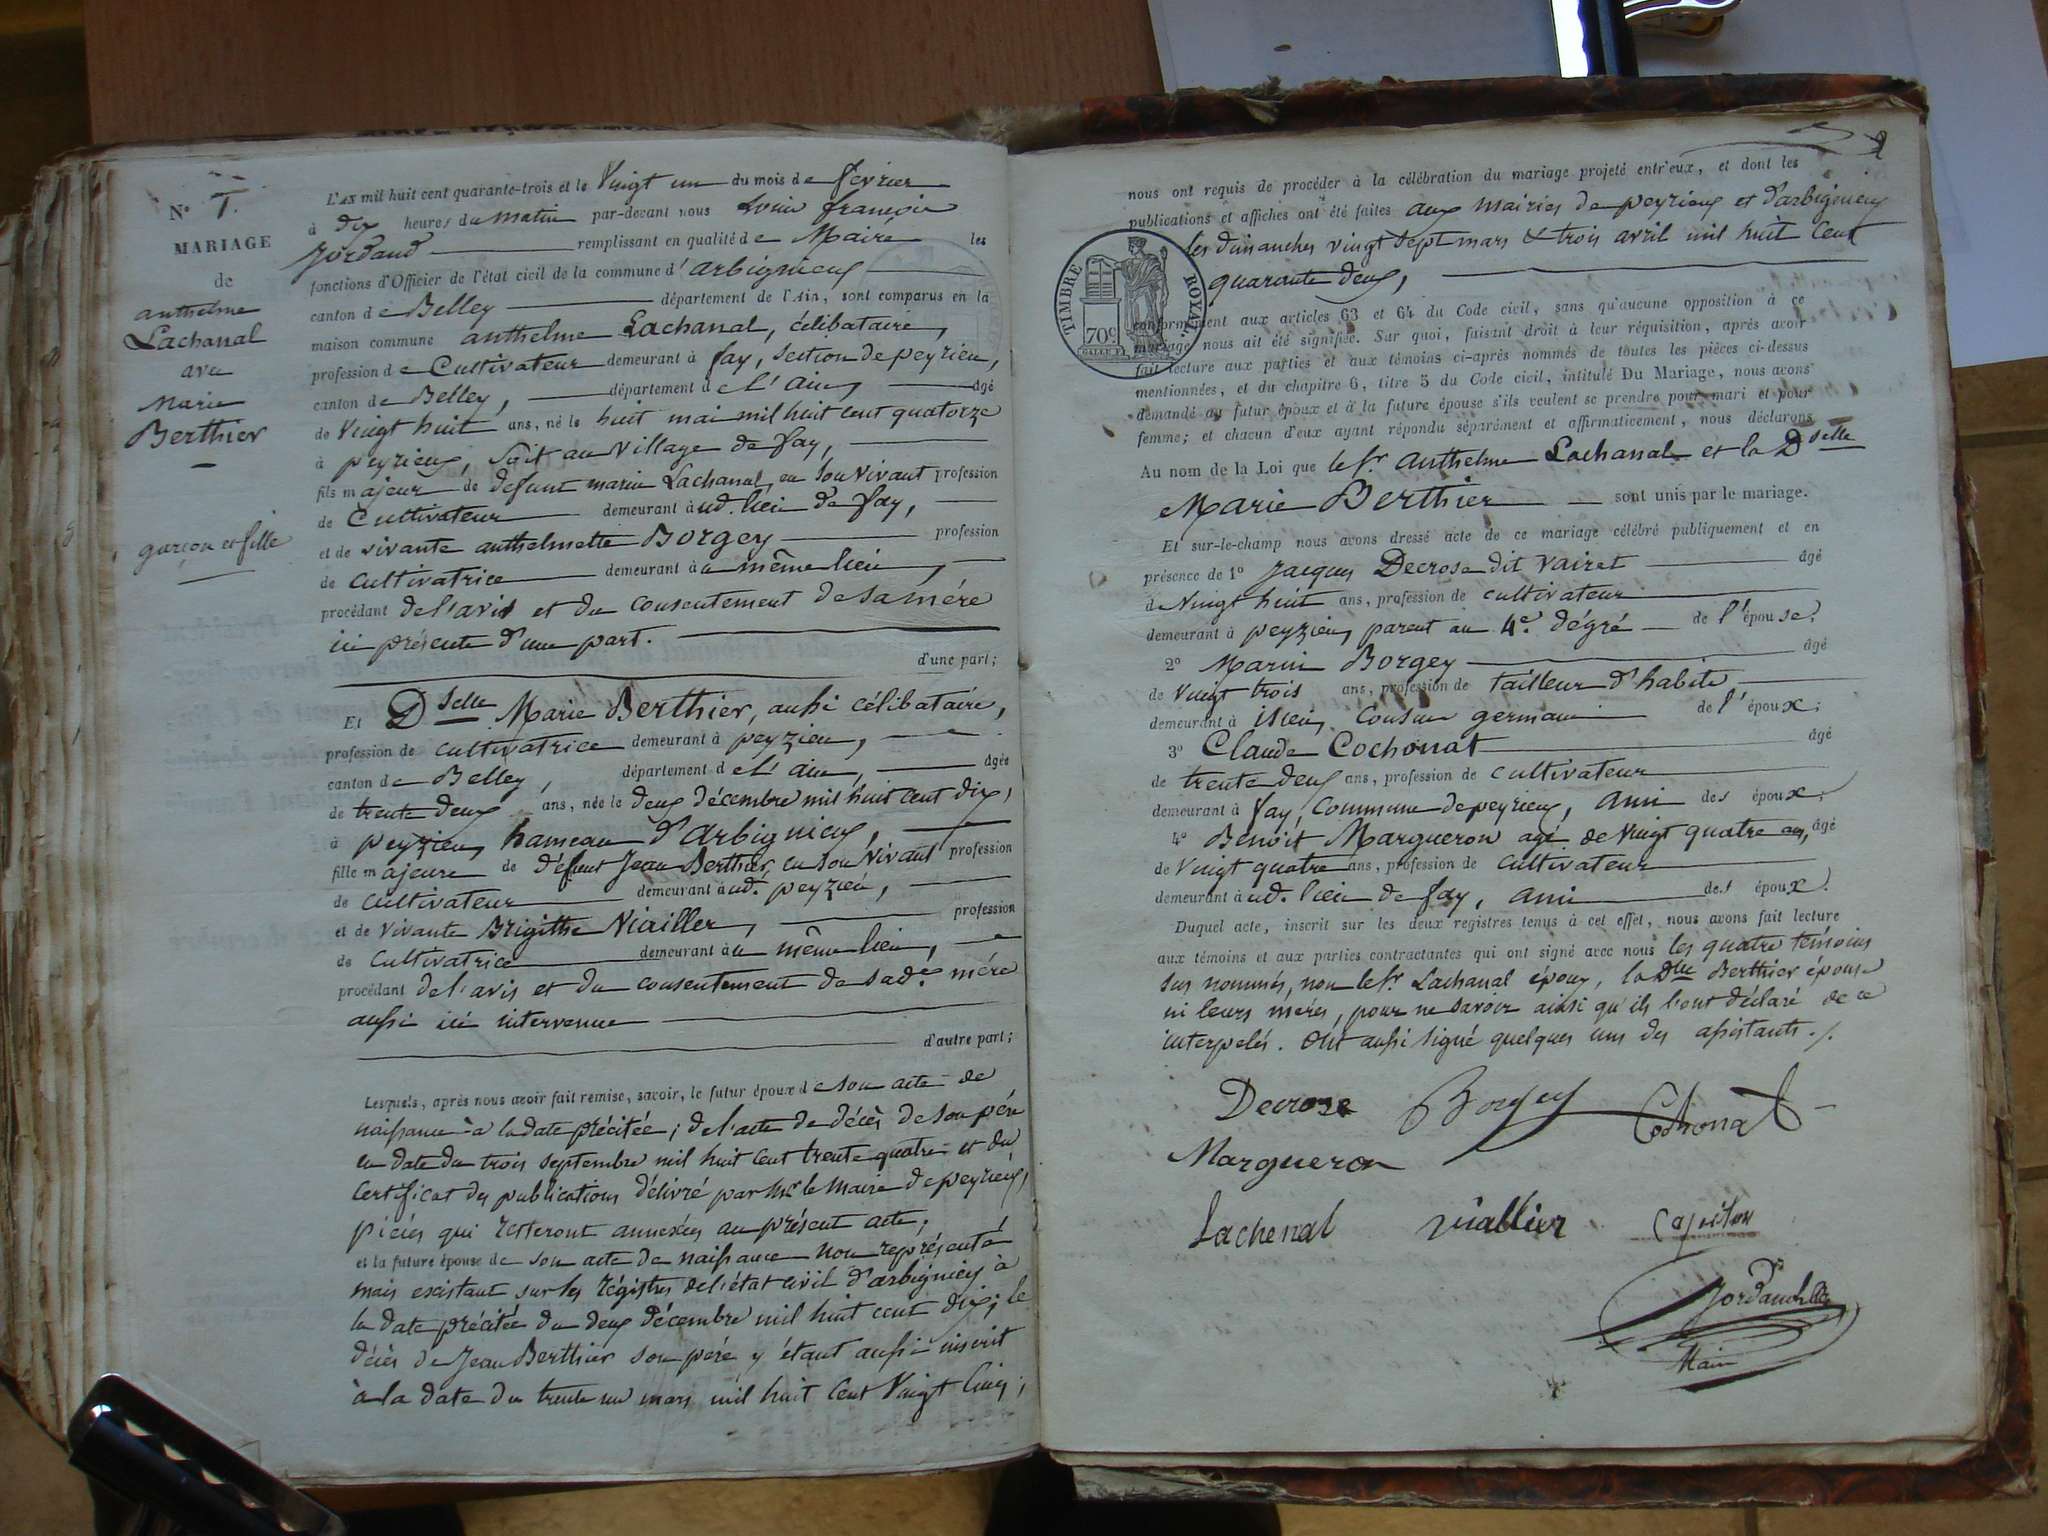 N° 7.
MARIAGE
de
anthelme
Lachanal
avec
Marie
Berthier
garçon et fille
L'AN mil huit cent quarante-trois et le Vingt un du mois de février
à dix heures du matin par-devant nous Louis françois
Jordand remplissant en qualité de Maire les
fonctions d'Officier de l'état civil de la commune d'arbignieux
canton de Belley département de l'Ain, sont comparus en la
maison commune anthelme Lachanal, célibataire,
profession de Cultivateur demeurant à fay, section de peyrieu,
canton de Belley, département de L'Ain, âgé
de Vingt huit ans, né le huit mai mil huit cent quatorze
à peyrieux, suit au Village de fay,
fils majeur de défunt marin Lachanal, en son vivant profession
de Cultivateur demeurant à ud. lieu de fay,
et de vivante anthelmette Borgey profession
de cultivatrice demeurant à u même lieu,
procédant de l'avis et du consentement de sa mère
ici présente d'une part.
d'une part;
Et Dselle Marie Berthier, aussi célibataire,
profession de cultivatrice demeurant à peyzieu,
canton de Belley, département de L'Ain, âgée
de trente deux ans, née le deux décembre mil huit cent dix,
à peyzieu, hameau d'Arbignieux,
fille majeure de défunt Jean Berthier, en son vivant profession
de cultivateur demeurant à ud. peyzieu,
et de vivante Brigitte Viailler, profession
de cultivatrice demeurant à u même lieu,
procédant de l'avis et du consentement de sad.e mère
aussi ici intervenue
d'autre part;
Lesquels, après nous avoir fait remise, savoir, le futur époux de son acte de
naissance à la date précitée; de l'acte de décès de son père
en date du trois septembre mil huit cent trente quatre et du
certificat des publications délivré par Mr le Maire de peyrieux,
pièces qui resteront annexées au présent acte;
et la future épouse de son acte de naissance non représenté
mais existant sur les régistres de l'état civil d'arbignieux à
la date précitée du deux décembre mil huit cent dix; le
décès de Jean Berthier son père y étant aussi inscrit
à la date du trente un mars mil huit cent Vingt cinq;
2
nous ont requis de procéder à la célébration du mariage projeté entr'eux, et dont les
publications et affiches ont été faites aux mairies de peyrieux et d'arbignieux
les dimanches vingt sept mars & trois avril mil huit cent
quarante deux,
TIMBRE ROYAL
70c
conformément aux articles 63 et 64 du Code civil, sans qu'aucune opposition à ce
mariage nous ait été signifiée. Sur quoi, faisant droit à leur réquisition, après avoir
fait lecture aux parties et aux témoins ci-après nommés de toutes les pièces ci-dessus
mentionnées, et du chapitre 6, titre 5 du Code civil, intitulé Du Mariage, nous avons
demandé au futur époux et à la future épouse s'ils veulent se prendre pour mari et pour
femme; et chacun d'eux ayant répondu séparément et affirmativement, nous déclarons
Au nom de la Loi que le Sr. Anthelme Lachanal et la Dselle
Marie Berthier sont unis par le mariage.
Et sur-le-champ nous avons dressé acte de ce mariage célébré publiquement et en
présence de 1° Jacques Decrose dit Vairet âgé
de Vingt huit ans, profession de cultivateur
demeurant à peyzieu, parent au 4e. dégré de l'épouse;
2° Marin Borgey âgé
de vingt trois ans, profession de tailleur d'habits
demeurant à isieu, Cousin germain de l'époux;
3° Claude Cochonat âgé
de trente deux ans, profession de cultivateur
demeurant à fay, Commune de peyrieux, ami des époux;
4° Benoit Margueron agé de vingt quatre ans, âgé
de Vingt quatre ans, profession de cultivateur
demeurant à ud. lieu de fay, ami des époux.
Duquel acte, inscrit sur les deux registres tenus à cet effet, nous avons fait lecture
aux témoins et aux parties contractantes qui ont signé avec nous les quatre témoins
sus nommés, non le Sr. Lachanal époux, la Dlle Berthier épouse
ni leurs mères, pour ne savoir ainsi qu'ils l'ont déclaré de ce
interpelés. Ont aussi signé quelques uns des assistants./.
Decrose Borgey Cochonat
Margueron
Lachenal viallier
Jordand
Maire